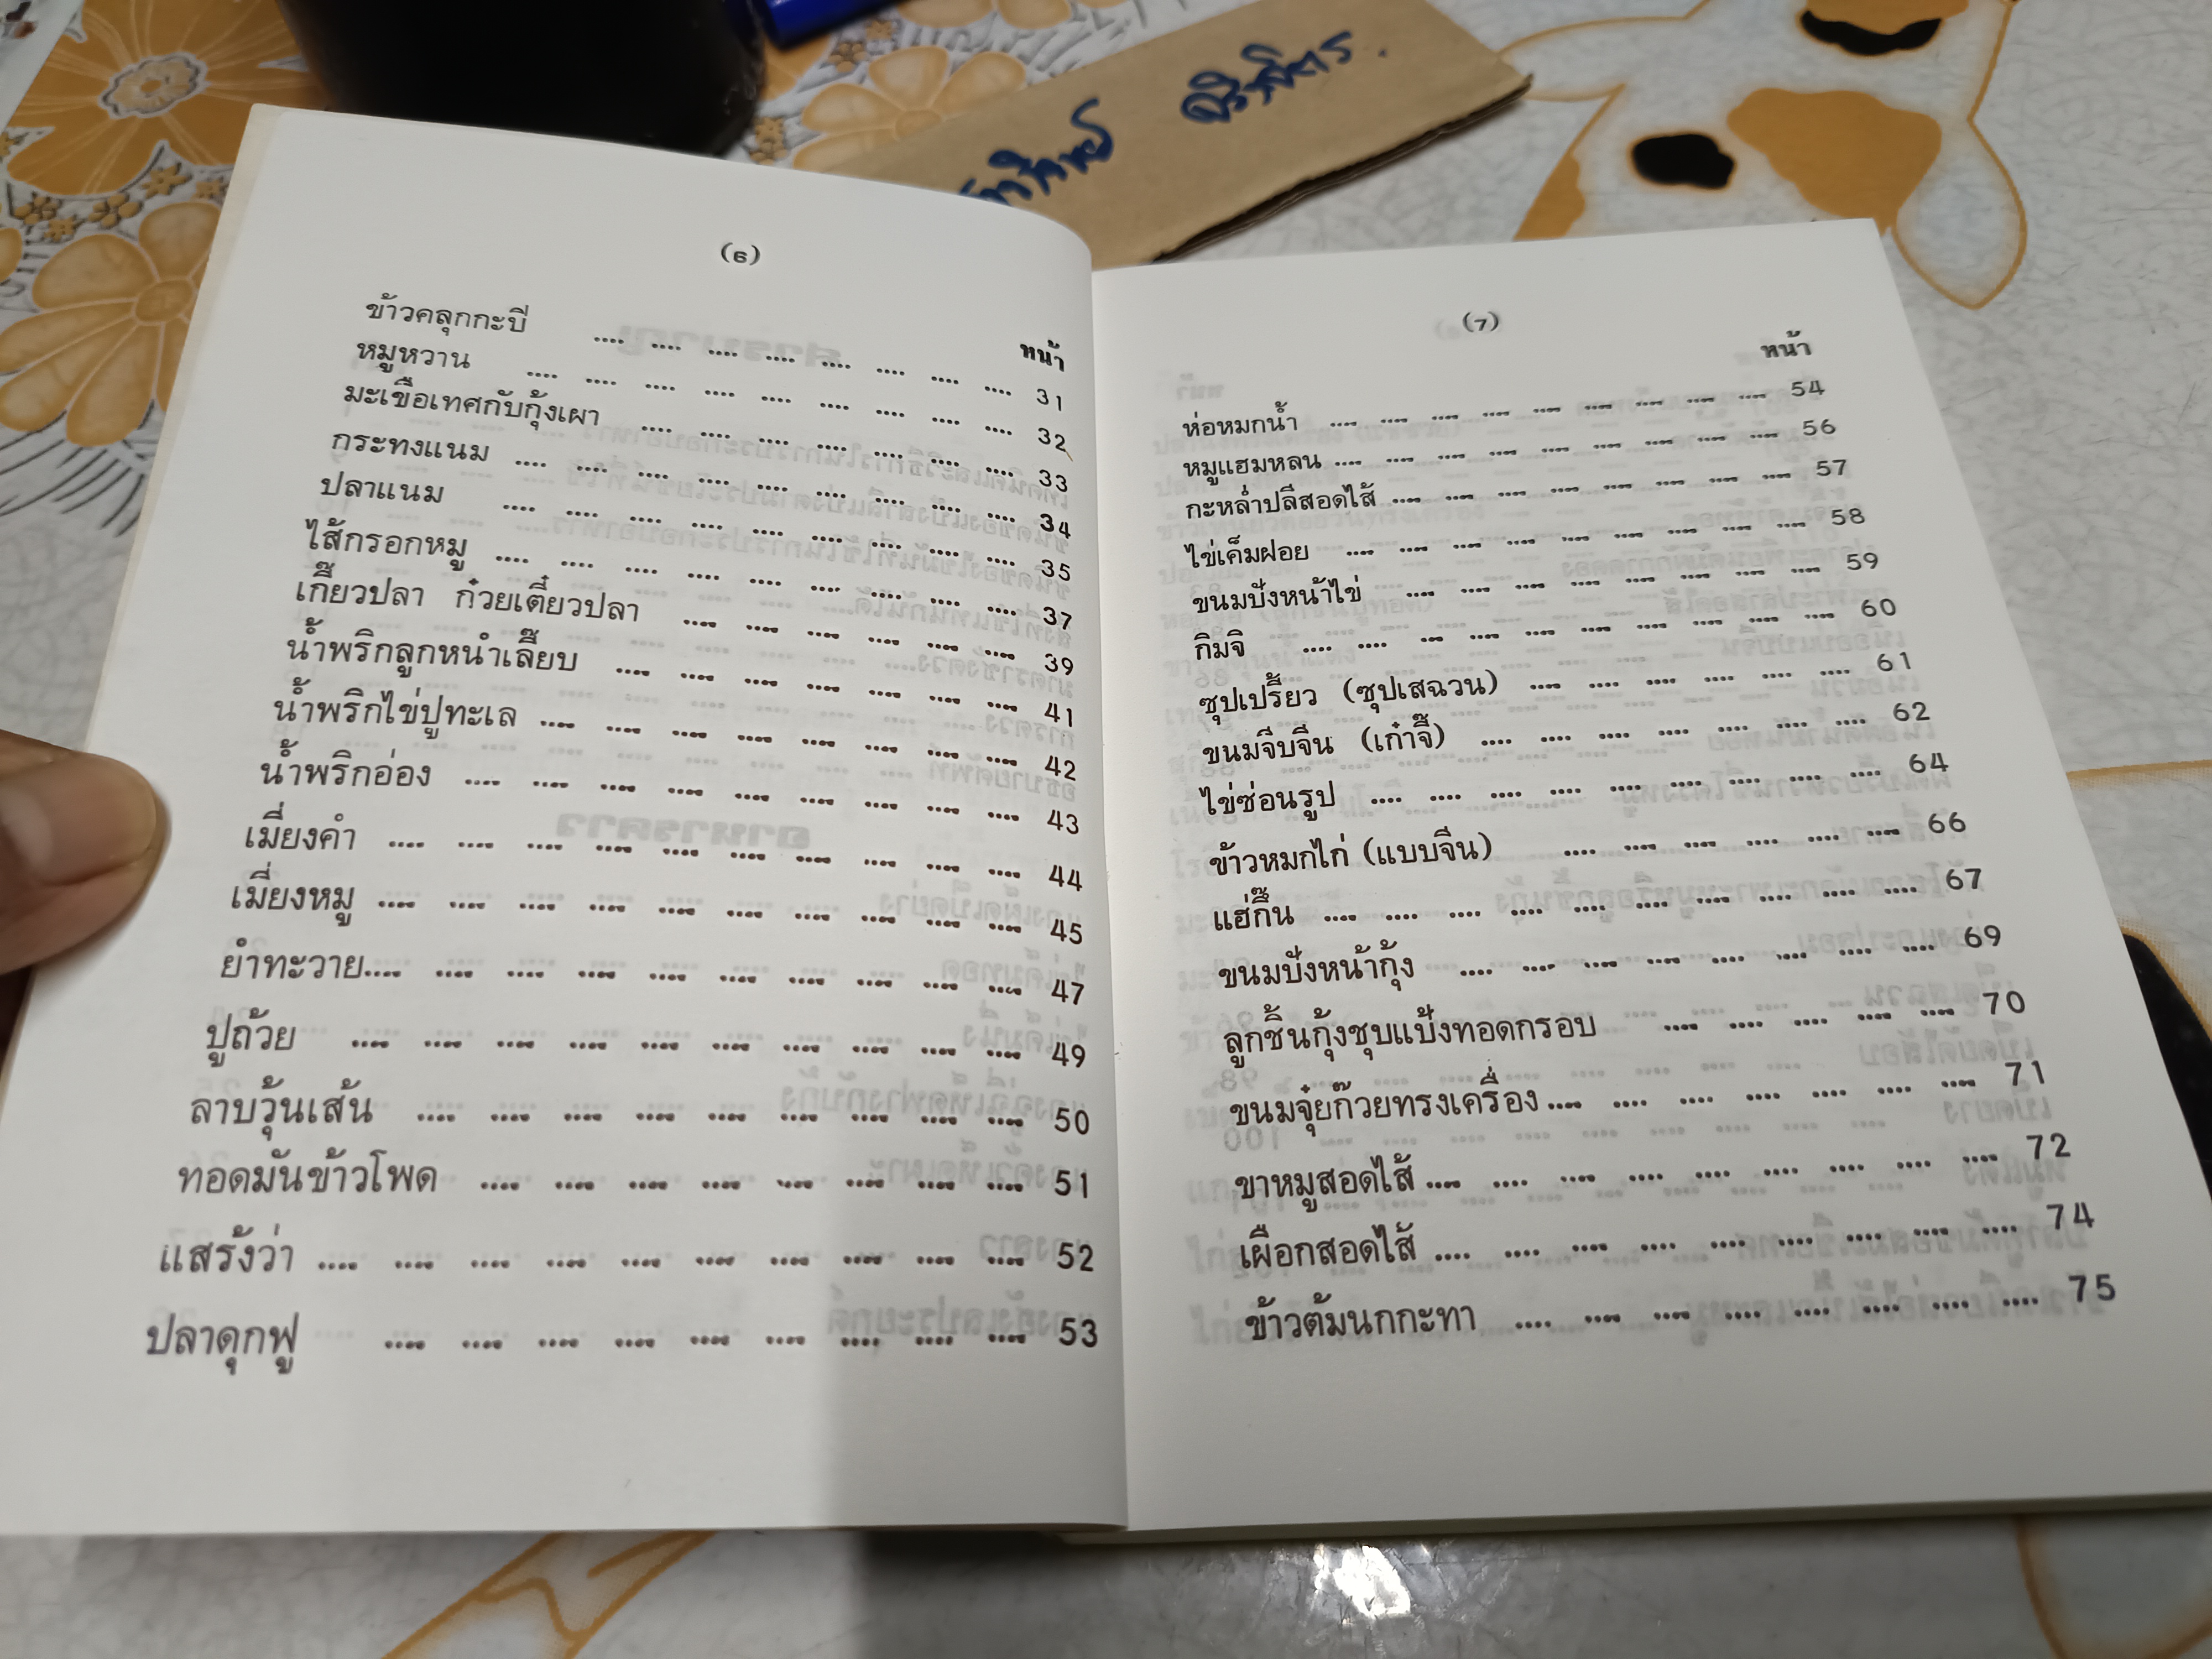 (6)
หน้า
ข้าวคลุกกะปี่ .... .... .... .... .... .... .... .... 31
หมูหวาน .... .... .... .... .... .... .... .... .... 32
มะเขือเทศกับกุ้งเผา .... .... .... .... .... .... .... 33
กระทงแนม .... .... .... .... .... .... .... .... .... 34
ปลาแนม .... .... .... .... .... .... .... .... .... 35
ไส้กรอกหมู .... .... .... .... .... .... .... .... .... 37
เกี๊ยวปลา ก๋วยเตี๋ยวปลา .... .... .... .... .... .... 39
น้ำพริกลูกหนำเลี๊ยบ .... .... .... .... .... .... .... 41
น้ำพริกไข่ปูทะเล .... .... .... .... .... .... .... .... 42
น้ำพริกอ่อง .... .... .... .... .... .... .... .... .... 43
เมี่ยงคำ .... .... .... .... .... .... .... .... .... .... 44
เมี่ยงหมู .... .... .... .... .... .... .... .... .... .... 45
ยำทะวาย.... .... .... .... .... .... .... .... .... .... 47
ปูถ้วย .... .... .... .... .... .... .... .... .... .... 49
ลาบวุ้นเส้น .... .... .... .... .... .... .... .... .... 50
ทอดมันข้าวโพด .... .... .... .... .... .... .... .... 51
แสร้งว่า .... .... .... .... .... .... .... .... .... .... 52
ปลาดุกฟู .... .... .... .... .... .... .... .... .... 53
(7)
หน้า
ห่อหมกน้ำ .... .... .... .... .... .... .... .... .... 54
หมูแฮมหลน .... .... .... .... .... .... .... .... .... 56
กะหล่ำปลีสอดไส้ .... .... .... .... .... .... .... .... 57
ไข่เค็มฝอย .... .... .... .... .... .... .... .... .... 58
ขนมปังหน้าไข่ .... .... .... .... .... .... .... .... 59
กิมจิ .... .... .... .... .... .... .... .... .... .... 60
ซุปเปรี้ยว (ซุปเสฉวน) .... .... .... .... .... .... 61
ขนมจีบจีน (เก๋าจี๊) .... .... .... .... .... .... .... 62
ไข่ซ่อนรูป .... .... .... .... .... .... .... .... .... 64
ข้าวหมกไก่ (แบบจีน) .... .... .... .... .... .... 66
แฮ่กึ๊น .... .... .... .... .... .... .... .... .... .... 67
ขนมปังหน้ากุ้ง .... .... .... .... .... .... .... .... 69
ลูกชิ้นกุ้งชุบแป้งทอดกรอบ .... .... .... .... .... 70
ขนมจุ๋ยก๊วยทรงเครื่อง .... .... .... .... .... .... .... 71
ขาหมูสอดไส้ .... .... .... .... .... .... .... .... .... 72
เผือกสอดไส้ .... .... .... .... .... .... .... .... .... 74
ข้าวต้มนกกะทา .... .... .... .... .... .... .... .... 75